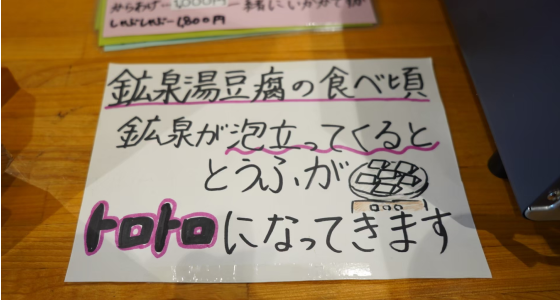 からあげ－1,000円 一緒にいかがですか
しゃぶしゃぶ－1,800円
鉱泉湯豆腐の食べ頃
鉱泉が泡立ってくると
とうふが
トロトロになってきます